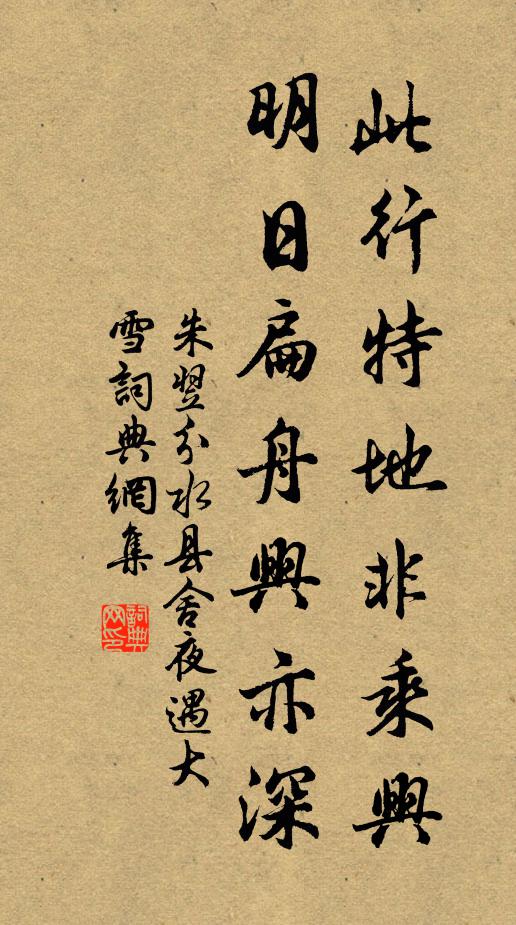 此行特地非乘興
明日扁舟興亦深
朱翌分水县舍夜遇大
雪詞典網集
詞典
网印